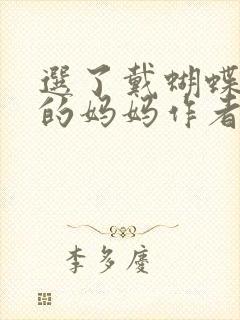 選了戴蝴蝶
的妈妈作者
李多慶